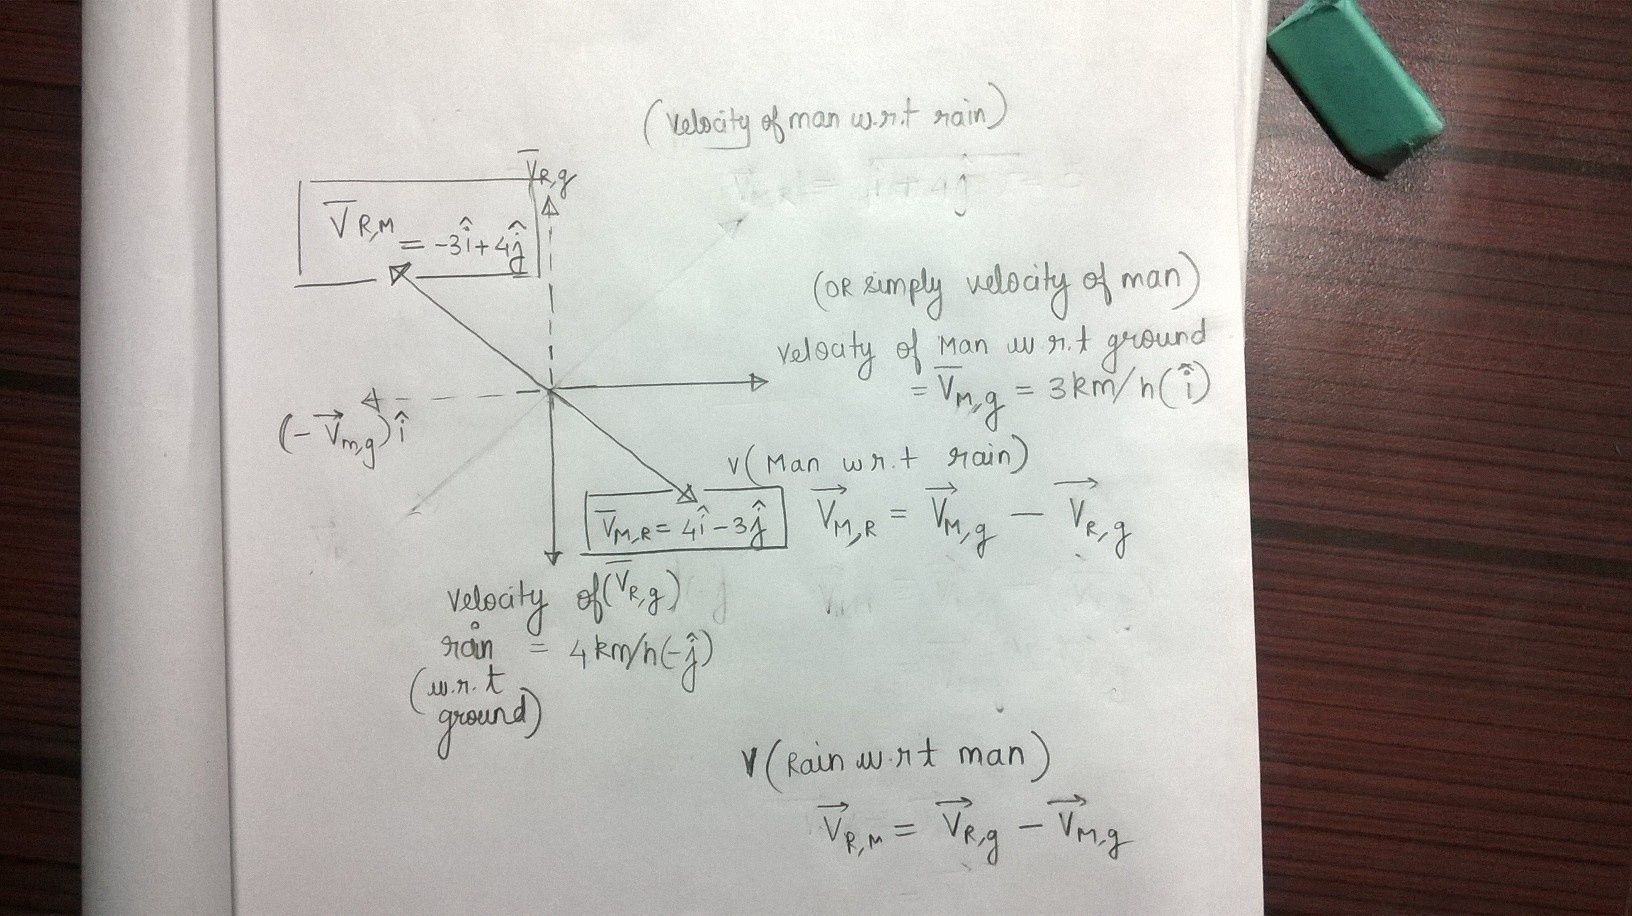 (velocity of man w.r.t rain)
V̅R,g
V̅R,M
= -3î+4ĵ
(OR simply velocity of man)
velocity of Man w.r.t ground
= V̅M,g = 3km/h(î)
(-V⃗m,g)î
V(Man w.r.t rain)
V̅M,R = 4î-3ĵ
V⃗M,R = V⃗M,g - V⃗R,g
velocity of(V̅R,g)
rain = 4km/h(-ĵ)
(w.r.t
ground)
V(Rain w.r.t man)
V⃗R,M = V⃗R,g - V⃗M,g